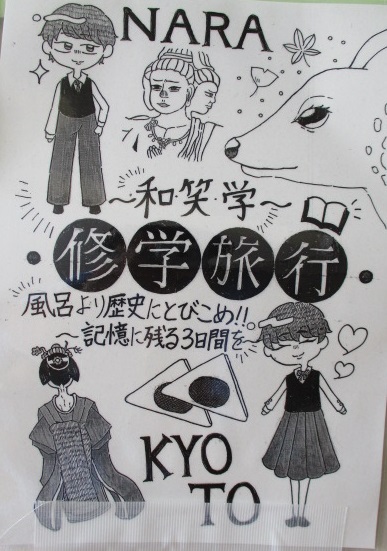 NARA
～和・笑・学～
・修学旅行・
風呂より歴史にとびこめ!!
～記憶に残る3日間を～
KYO
TO